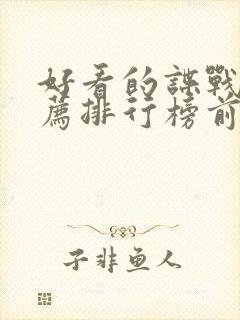 好看的諜戰
薦排行榜前
子非鱼人